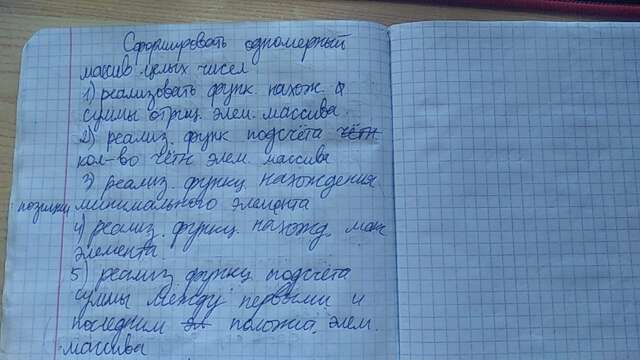 Сформировать одномерный
массив целых чисел
1) реализовать функ. нахож.
суммы отриц. элем. массива
2) реализ. функ подсчёта чётн
кол-во чётн элем. массива
3) реализ. функц нахождения
позиции минимального элемента
4) реализ. функц. нахожд. мак
элемента
5) реализ функц подсчёта
суммы между первым и
последним эл положит. элем.
массива